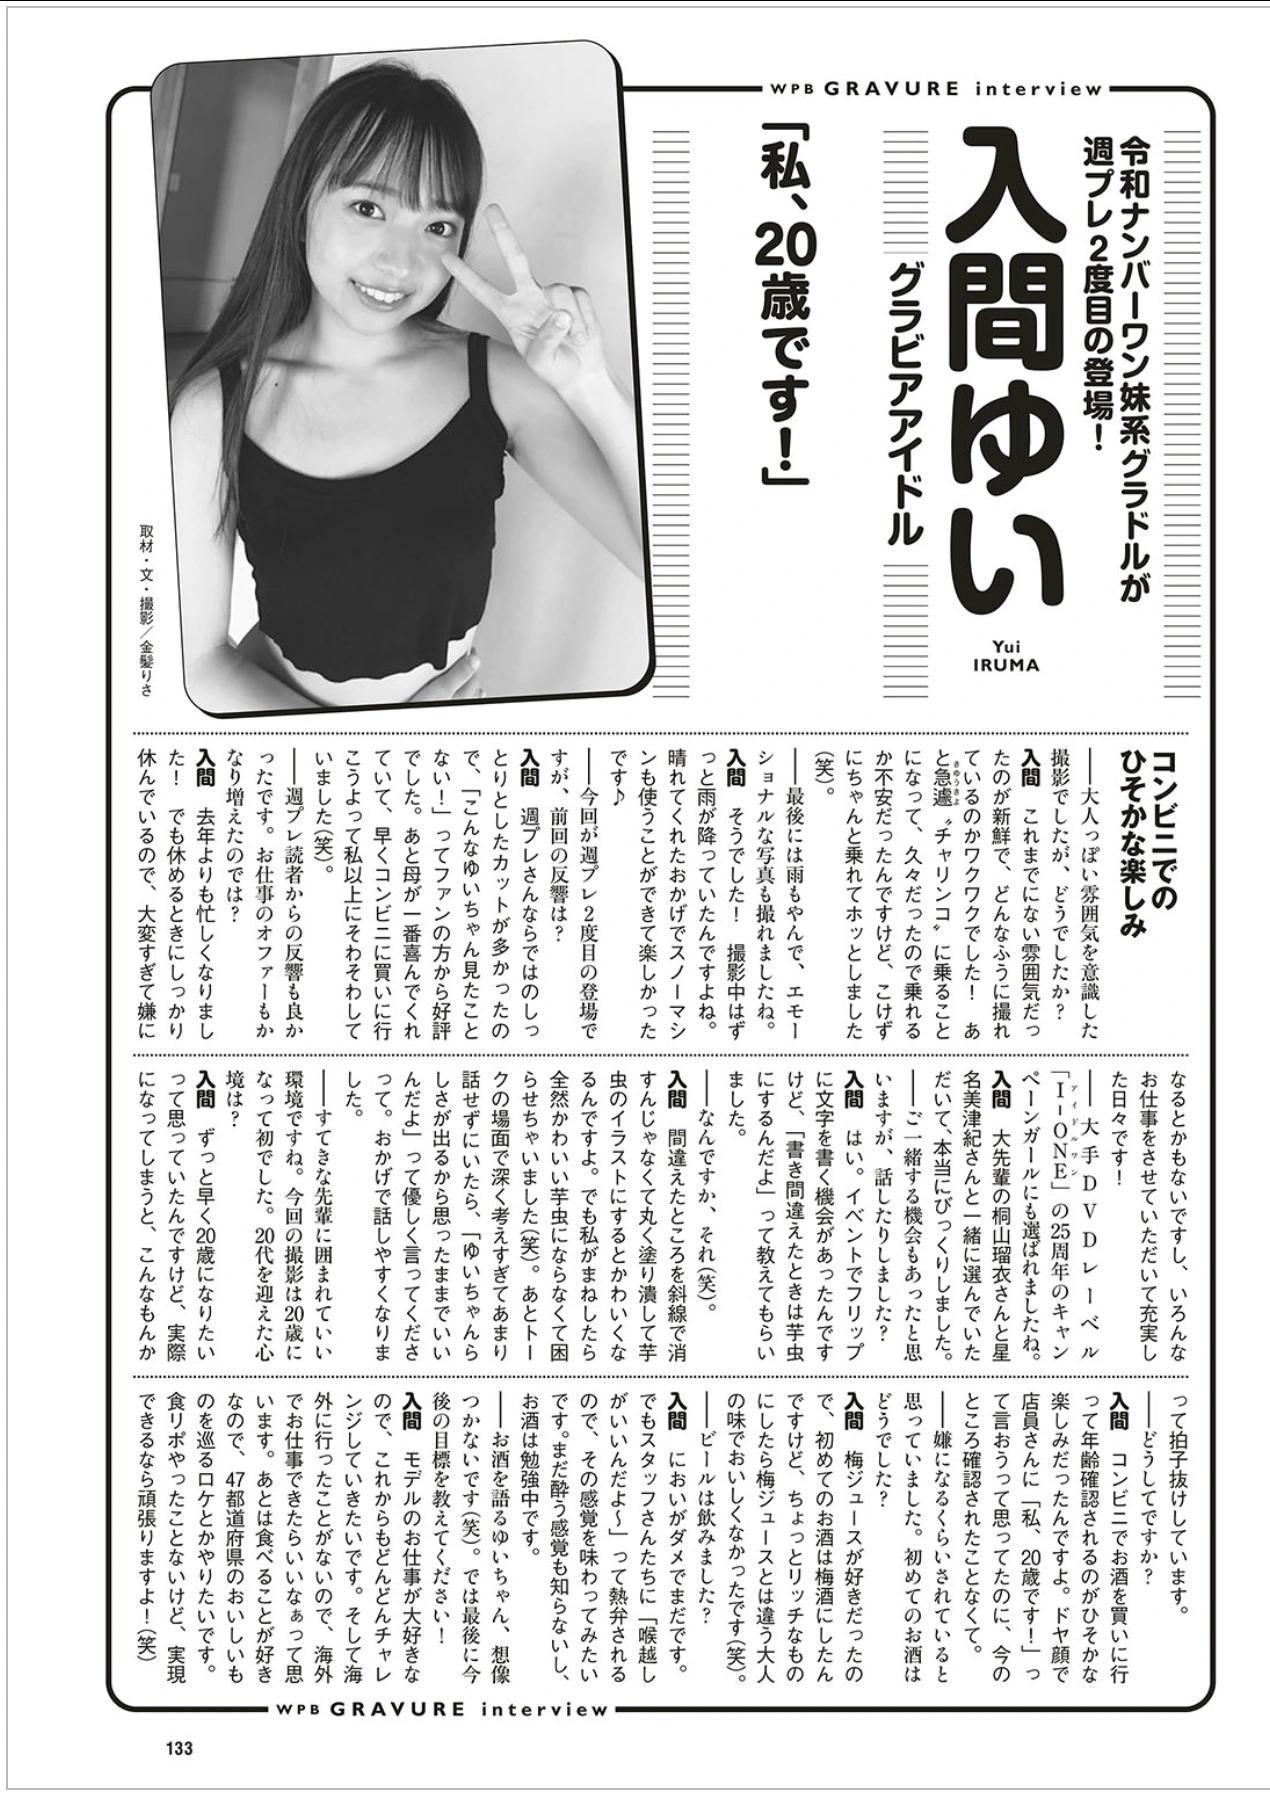 WPB GRAVURE interview
令和ナンバーワン妹系グラドルが
週プレ2度目の登場！
入間ゆい
Yui
IRUMA
グラビアアイドル
「私、20歳です！」
取材・文・撮影／金髪りさ
コンビニでの
ひそかな楽しみ
──大人っぽい雰囲気を意識した
撮影でしたが、どうでしたか？
入間　これまでにない雰囲気だっ
たのが新鮮で、どんなふうに撮れ
ているのかワクワクでした！　あ
と急遽〝チャリンコ〟に乗ること
きゅうきょ
になって、久々だったので乗れる
か不安だったんですけど、こけず
にちゃんと乗れてホッとしました
（笑）。
──最後には雨もやんで、エモー
ショナルな写真も撮れましたね。
入間　そうでした！　撮影中はず
っと雨が降っていたんですよね。
晴れてくれたおかげでスノーマシ
ンも使うことができて楽しかった
です♪
──今回が週プレ2度目の登場で
すが、前回の反響は？
入間　週プレさんならではのしっ
とりとしたカットが多かったの
で、「こんなゆいちゃん見たこと
ない！」ってファンの方から好評
でした。あと母が一番喜んでくれ
ていて、早くコンビニに買いに行
こうよって私以上にそわそわして
いました（笑）。
──週プレ読者からの反響も良か
ったです。お仕事のオファーもか
なり増えたのでは？
入間　去年よりも忙しくなりまし
た！　でも休めるときにしっかり
休んでいるので、大変すぎて嫌に
なるとかもないですし、いろんな
お仕事をさせていただいて充実し
た日々です！
──大手DVDレーベル
「I−ONE」の25周年のキャン
アイドルワン
ペーンガールにも選ばれましたね。
入間　大先輩の桐山瑠衣さんと星
名美津紀さんと一緒に選んでいた
だいて、本当にびっくりしました。
──ご一緒する機会もあったと思
いますが、話したりしました？
入間　はい。イベントでフリップ
に文字を書く機会があったんです
けど、「書き間違えたときは芋虫
にするんだよ」って教えてもらい
ました。
──なんですか、それ（笑）。
入間　間違えたところを斜線で消
すんじゃなくて丸く塗り潰して芋
虫のイラストにするとかわいくな
るんですよ。でも私がまねしたら
全然かわいい芋虫にならなくて困
らせちゃいました（笑）。あとトー
クの場面で深く考えすぎてあまり
話せずにいたら、「ゆいちゃんら
しさが出るから思ったままでいい
んだよ」って優しく言ってくださ
って。おかげで話しやすくなりま
した。
──すてきな先輩に囲まれてい
環境ですね。今回の撮影は20歳に
なって初でした。20代を迎えた心
境は？
入間　ずっと早く20歳になりたい
って思っていたんですけど、実際
になってしまうと、こんなもんか
って拍子抜けしています。
──どうしてですか？
入間　コンビニでお酒を買いに行
って年齢確認されるのがひそかな
楽しみだったんですよ。ドヤ顔で
店員さんに「私、20歳です！」っ
て言おうって思ってたのに、今の
ところ確認されたことなくて。
──嫌になるくらいされていると
思っていました。初めてのお酒は
どうでした？
入間　梅ジュースが好きだったの
で、初めてのお酒は梅酒にしたん
ですけど、ちょっとリッチなもの
にしたら梅ジュースとは違う大人
の味でおいしくなかったです（笑）。
──ビールは飲みました？
入間　においがダメでまだです。
でもスタッフさんたちに「喉越し
がいいんだよ〜」って熱弁される
ので、その感覚を味わってみたい
です。まだ酔う感覚も知らないし、
お酒は勉強中です。
──お酒を語るゆいちゃん、想像
つかないです（笑）。では最後に今
後の目標を教えてください！
入間　モデルのお仕事が大好きな
ので、これからもどんどんチャレ
ンジしていきたいです。そして海
外に行ったことがないので、海外
でお仕事できたらいいなぁって思
います。あとは食べることが好き
なので、47都道府県のおいしいも
のを巡るロケとかやりたいです。
食リポやったことないけど、実現
できるなら頑張りますよ！（笑）
WPB GRAVURE interview
133